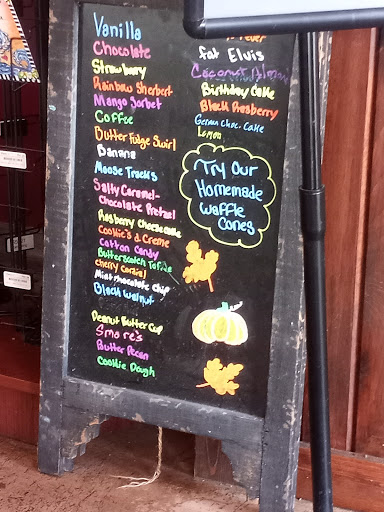 Vanilla
Chocolate
Strawberry
Rainbow Sherbert
Mango Sorbet
Coffee
Butter Fudge Swirl
Banana
Moose Tracks
Salty Caramel-
Chocolate Pretzel
Raspberry Cheesecake
Cookie's & Creme
Cotton Candy
Butterscotch Toffee
Cherry Cordial
Mint Chocolate Chip
Black Walnut
Peanut Butter Cup
Smore's
Butter Pecan
Cookie Dough
fat Elvis
Coconut Almond
Birthday Cake
Black Raspberry
German Choc. Cake
Lemon
Try Our
Homemade
Waffle
Cones